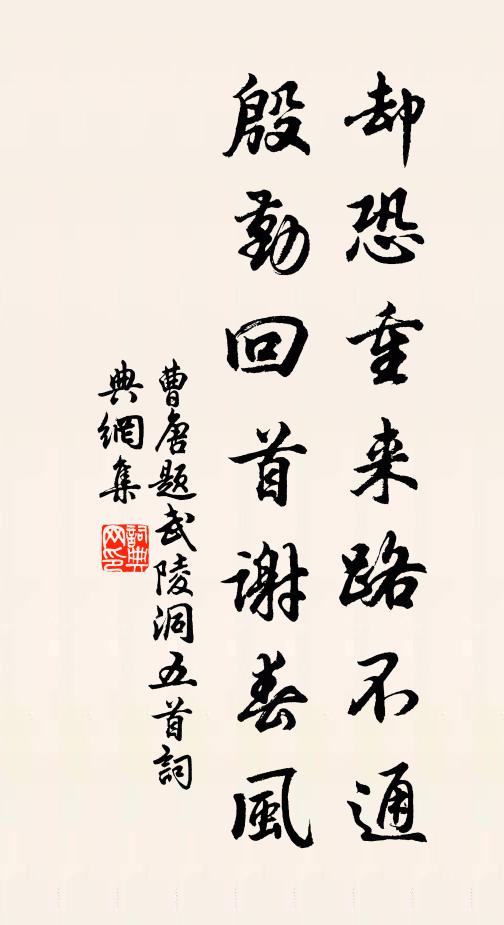 却恐重来路不通
殷勤回首謝春風
曹唐题武陵洞五首詞
典網集
詞典網印